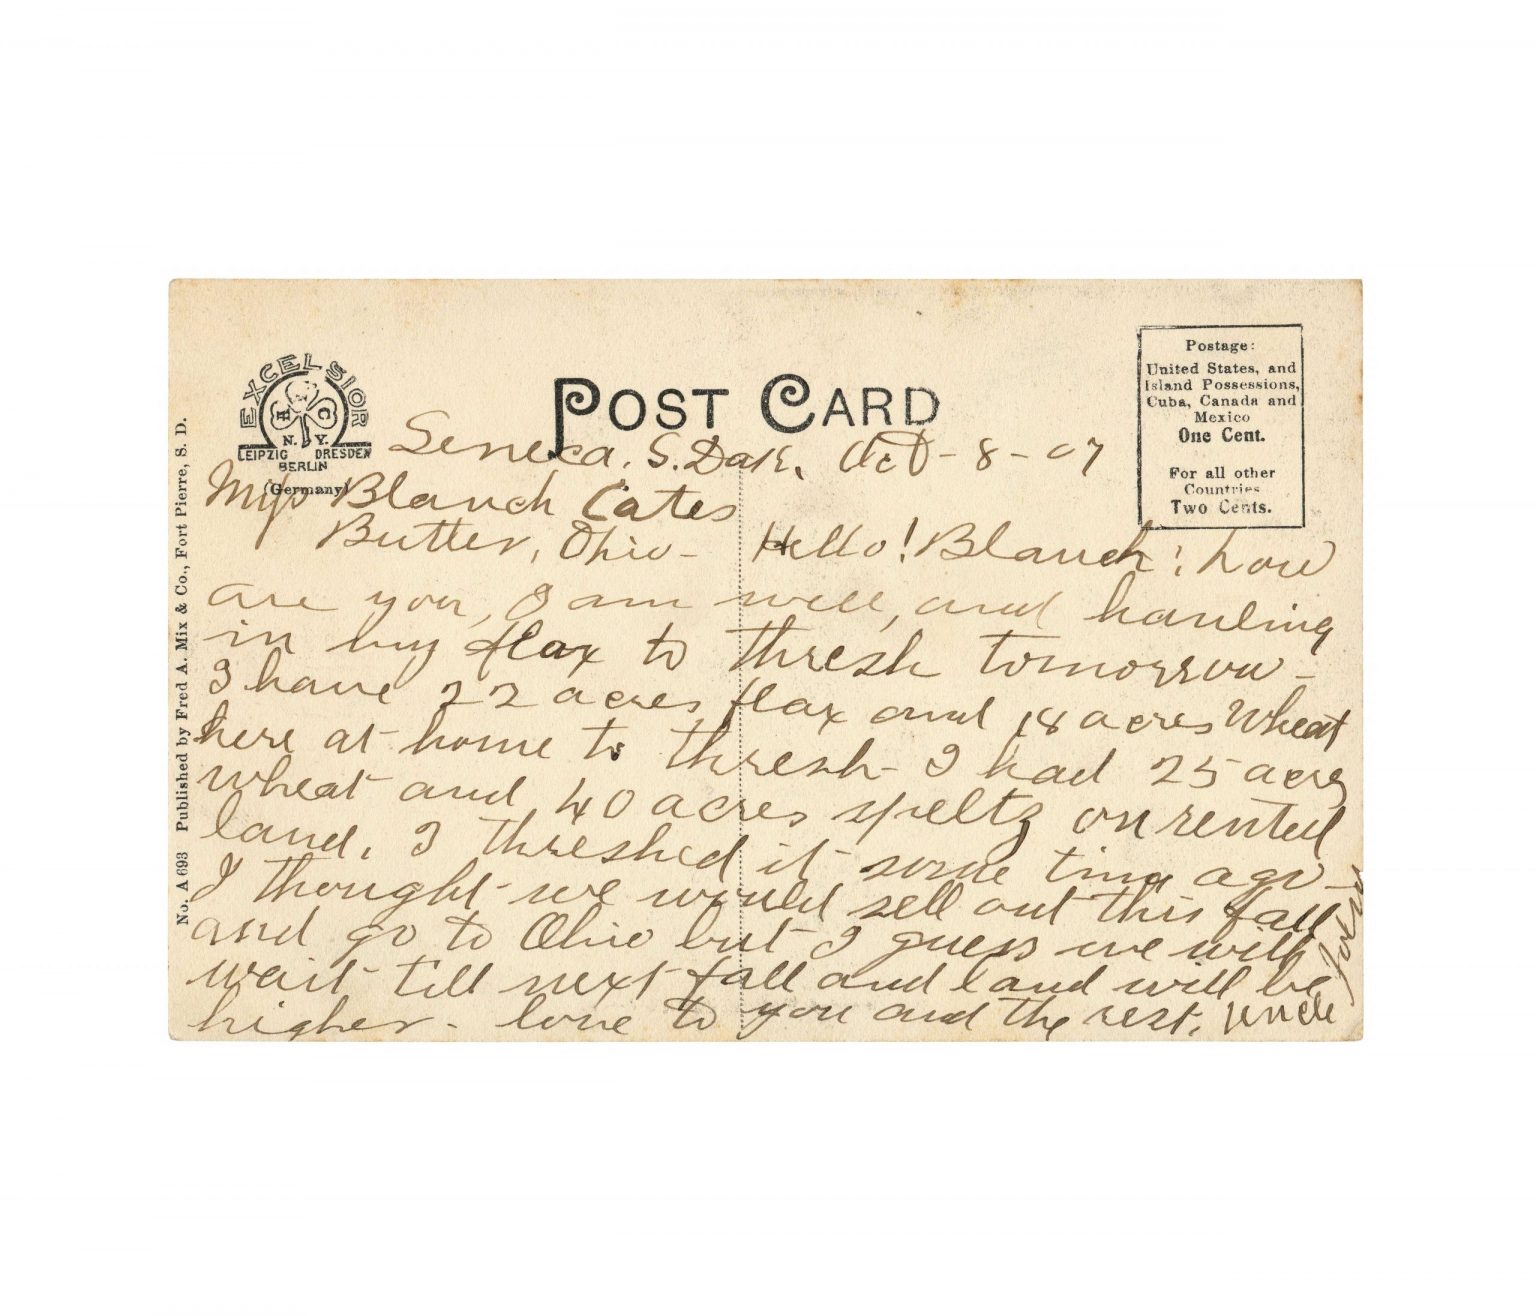 EXCELSIOR
H C
N. Y.
LEIPZIG DRESDEN
BERLIN
(Germany)
POST CARD
Postage:
United States, and
Island Possessions,
Cuba, Canada and
Mexico
One Cent.
For all other
Countries
Two Cents.
No. A 693 Published by Fred A. Mix & Co., Fort Pierre, S. D.
Seneca, S. Dak, Oct - 8 - 07
Miss Blanch Cates
Butler, Ohio - Hello! Blanch; how
are you, I am well, and hauling
in my flax to thresh tomorrow -
I have 22 acres flax and 18 acres Wheat
here at home to thresh - I had 25 acres
wheat and 40 acres speltz on rented
land, I threshed it some time ago -
I thought we would sell out this fall
and go to Ohio but I guess we will
wait till next fall and land will be
higher - love to you and the rest, Uncle
John